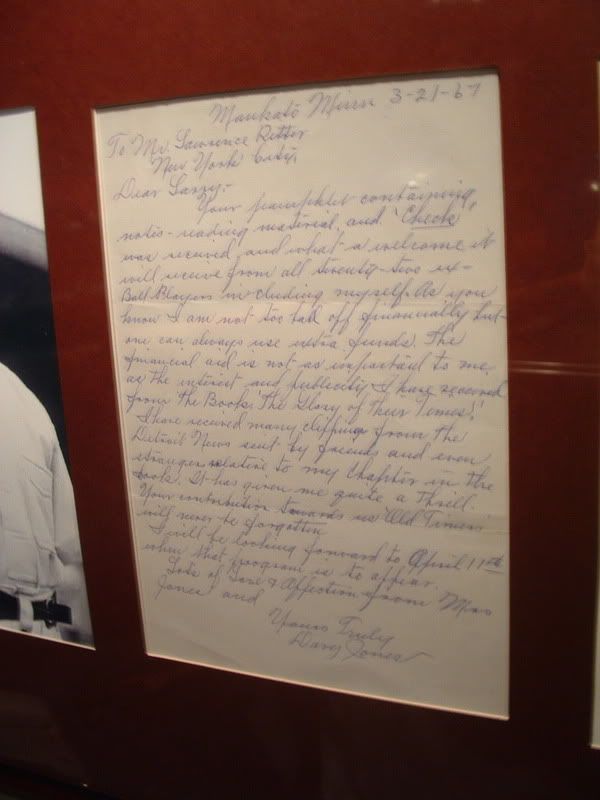 Mankato Minn 3-21-67
To Mr. Lawrence Ritter
New York City.
Dear Larry:-
Your pamphlet containing
notes-reading material, and "Check"
was received, and what a welcome it
will receive from all twenty-two ex-
Ball Players including myself. As you
know I am not too bad off financially but
one can always use extra funds. The
financial aid is not as important to me
as the interest and publicity I have received
from the Book "The Glory of Their Times"!
I have received many clippings from the
Detroit News sent by friends and even
strangers relative to my Chapter in the
book. It has given me quite a Thrill.
Your contribution towards us Old Timers
will never be forgotten
I will be looking forward to April 11th
when that program is to appear.
Lots of Love & Affection from Mrs
Jones and
Yours Truly
Davy Jones